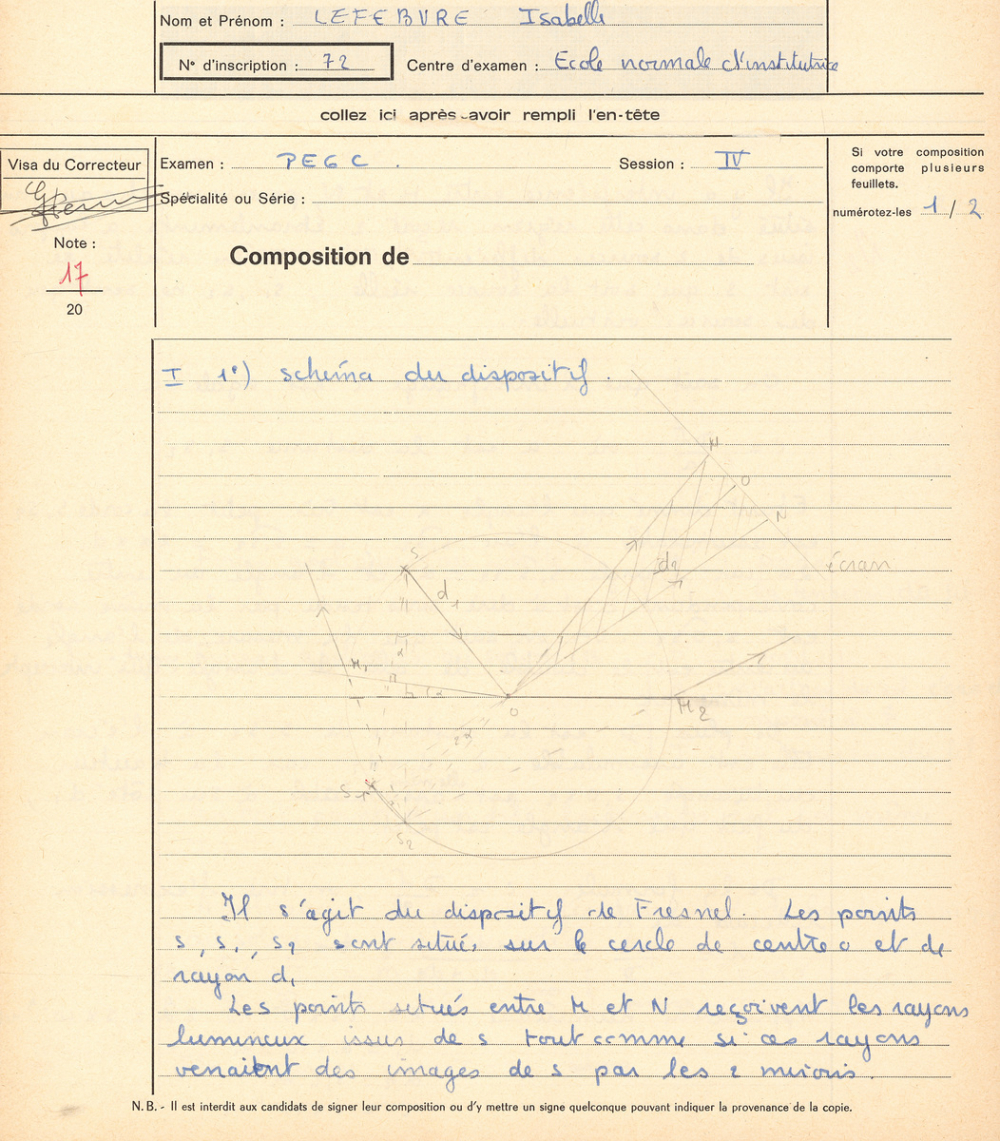 Nom et Prénom : LEFEBVRE Isabelle
N° d'inscription : 72 Centre d'examen : Ecole normale d'institutrice
collez ici après avoir rempli l'en-tête
Visa du Correcteur
Note :
17
20
Examen : PEGC . Session : IV
Spécialité ou Série :
Composition de
Si votre composition
comporte plusieurs
feuillets.
numérotez-les 1 / 2
I 1°) schéma du dispositif .
M
O
N
S
d2
écran
d1
M1
I
O
M2
2α
S1
S2
Il s'agit du dispositif de Fresnel. Les points
s, s1, s2 sont situés sur le cercle de centre o et de
rayon d1
Les points situés entre M et N reçoivent les rayons
lumineux issus de s tout comme si ces rayons
venaient des images de s par les 2 miroirs.
N. B. - Il est interdit aux candidats de signer leur composition ou d'y mettre un signe quelconque pouvant indiquer la provenance de la copie.